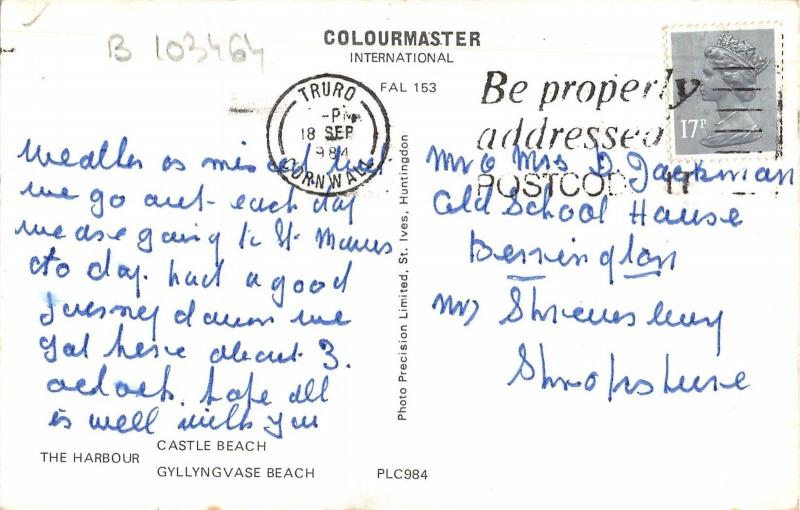 B 103464
COLOURMASTER
INTERNATIONAL
FAL 153
TRURO
-PM
18 SEP
1984
CORNWALL
Be properly
addressed
POSTCODE IT
17P
Weather is mixed but
we go out each day
we are going to St. Mawes
to day. had a good
jurney down we
got here about 3.
oclock. hope all
is well with you
Mr & Mrs D. Jackman
Old School House
Berrington
Nr) Shrewsbury
Shropshire
Photo Precision Limited, St. Ives, Huntingdon
THE HARBOUR
CASTLE BEACH
GYLLYNGVASE BEACH
PLC984